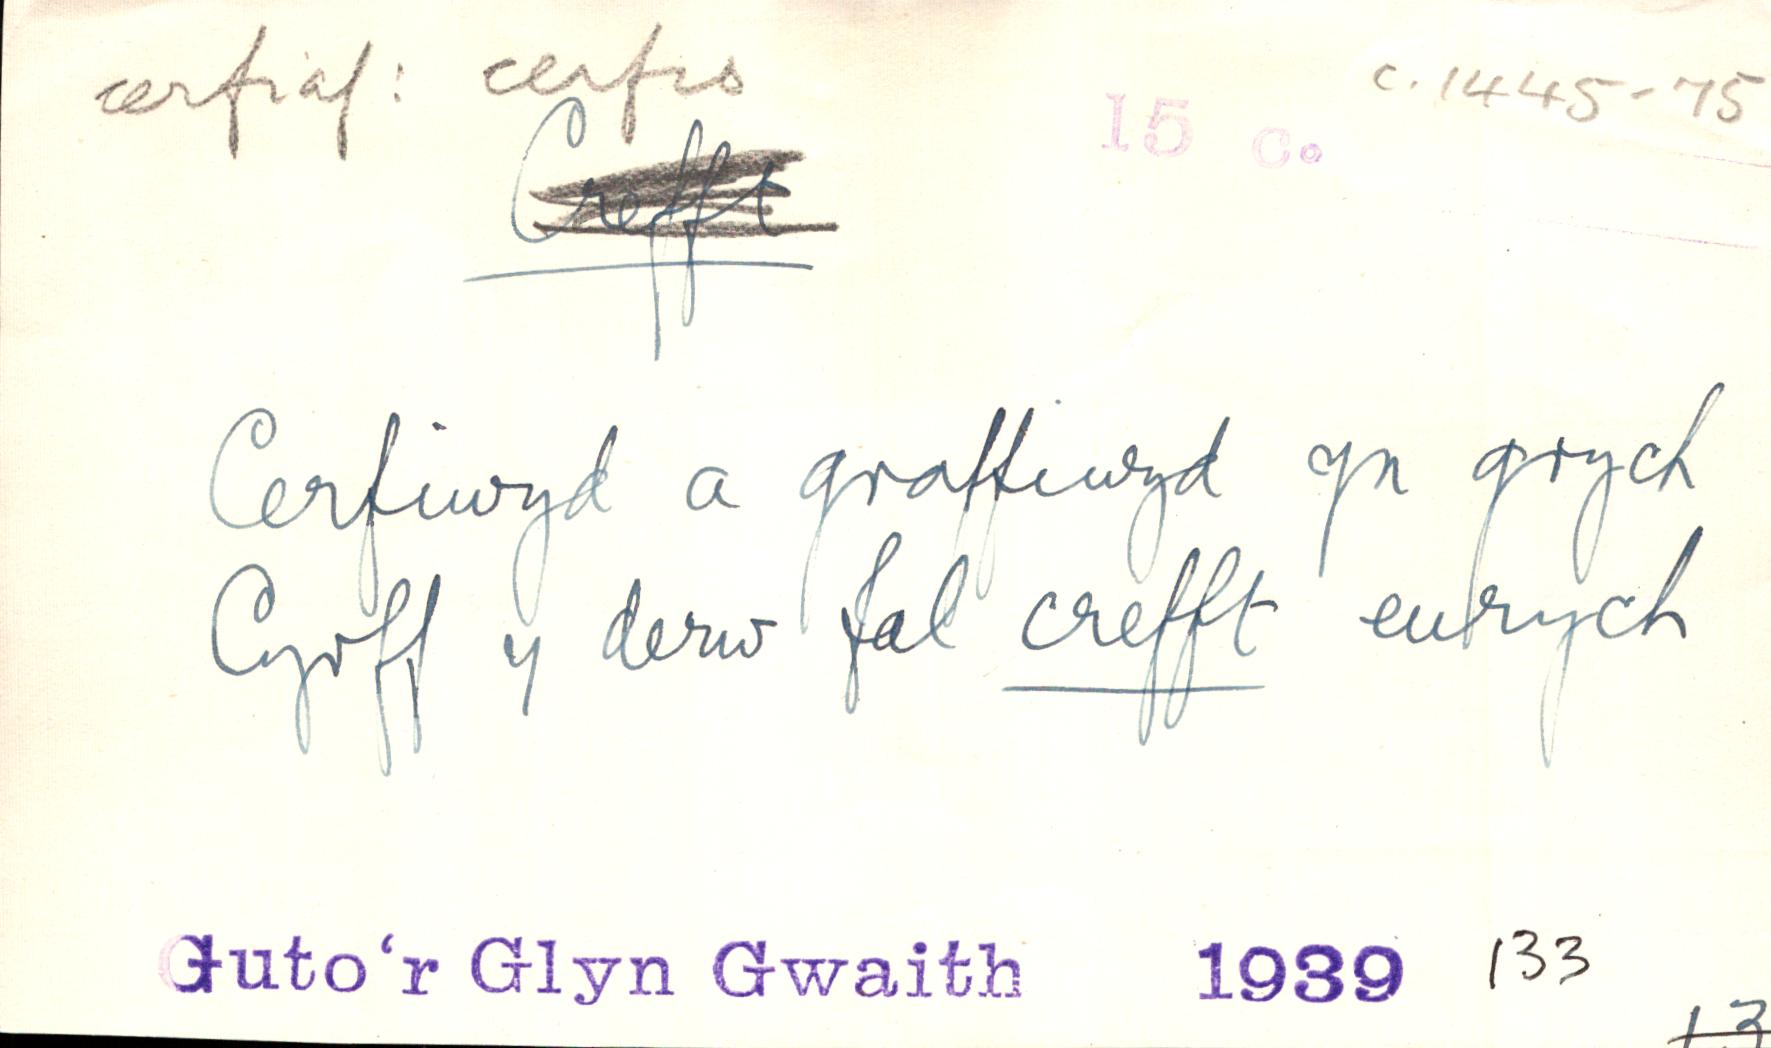 cerfiaf: cerfio
c. 1445-75
15 c.
Crefft
Cerfiwyd a graffiwyd yn grych
Cyrff y derw fal crefft eurych
Guto'r Glyn Gwaith 1939 133
13